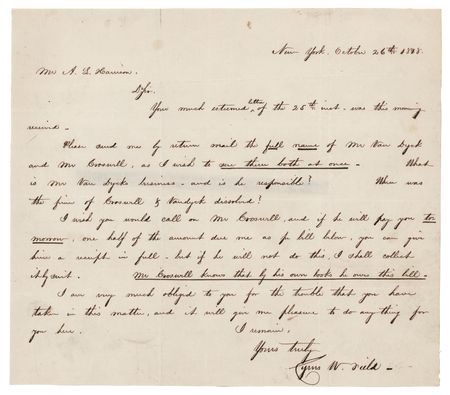 New York. October 26th 1848.
Mr A. L. Harrison.
D/Sir.
Your much esteemed letter of the 25th inst. was this morning
received –
Please send me by return mail the full name of Mr Van Dyck
and Mr Croswell, as I wish to sue them both at once – What
is Mr Van Dycks business – and is he responsible? When was
the firm of Croswell & Vandyck dissolved?
I wish you would call on Mr Croswell, and if he will pay you to
morrow, one half of the amount due me as pr bill below, you can give
him a receipt in full – but if he will not do this, I shall collect
it by suit. Mr Croswell knows that by his own books he owes this bill –
I am very much obliged to you for the trouble that you have
taken in this matter, and it will give me pleasure to do any thing for
you here. I remain,
Yours truly
Cyrus W. Field –